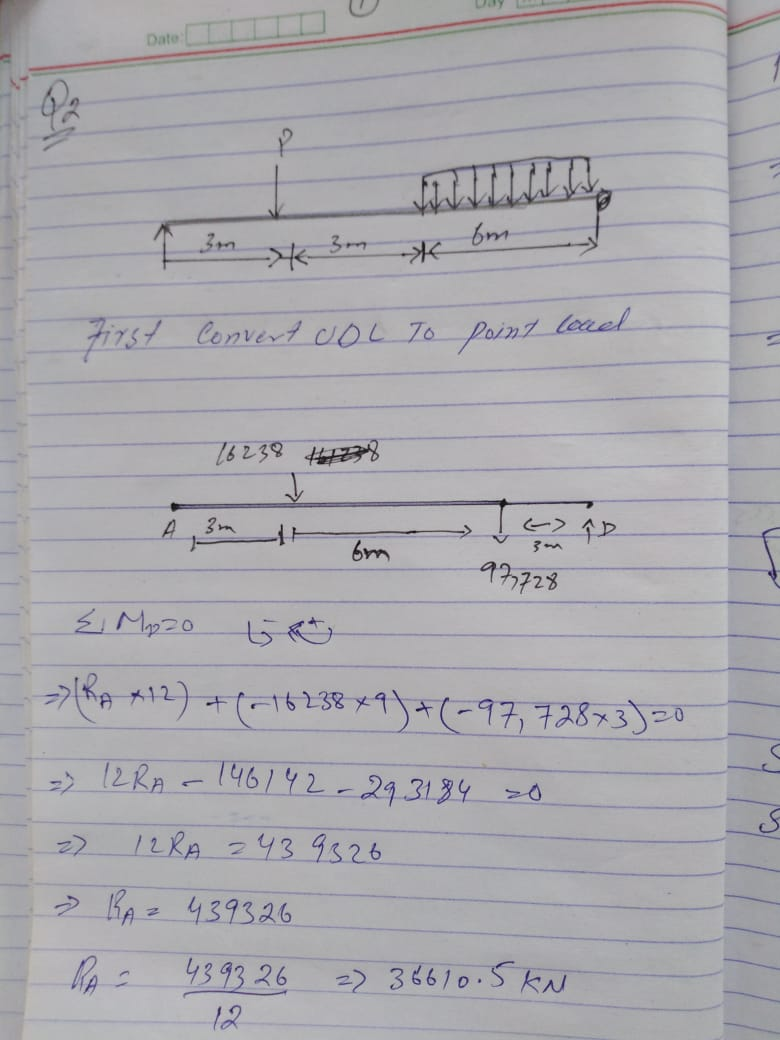 Date:
Day
Q2
P
3m 3m 6m
First Convert UDL To point load
16238
A 3m 6m 3m D
97,728
ΣM_D=0 - +
⇒(R_A ×12) + (-16238×9)+(-97,728×3)=0
⇒ 12R_A - 146142 - 293184 =0
⇒ 12R_A = 439326
⇒ R_A = 439326
R_A = 439326 ⇒ 36610.5 KN
12